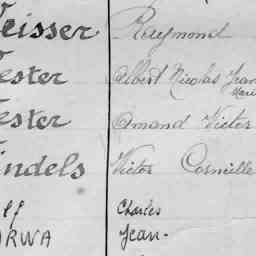 eisser Raymond
ester Albert Nicolas Jean
Marie
ester Amand Victor
indels Victor Corneille
lf Charles
ARWA Jean-